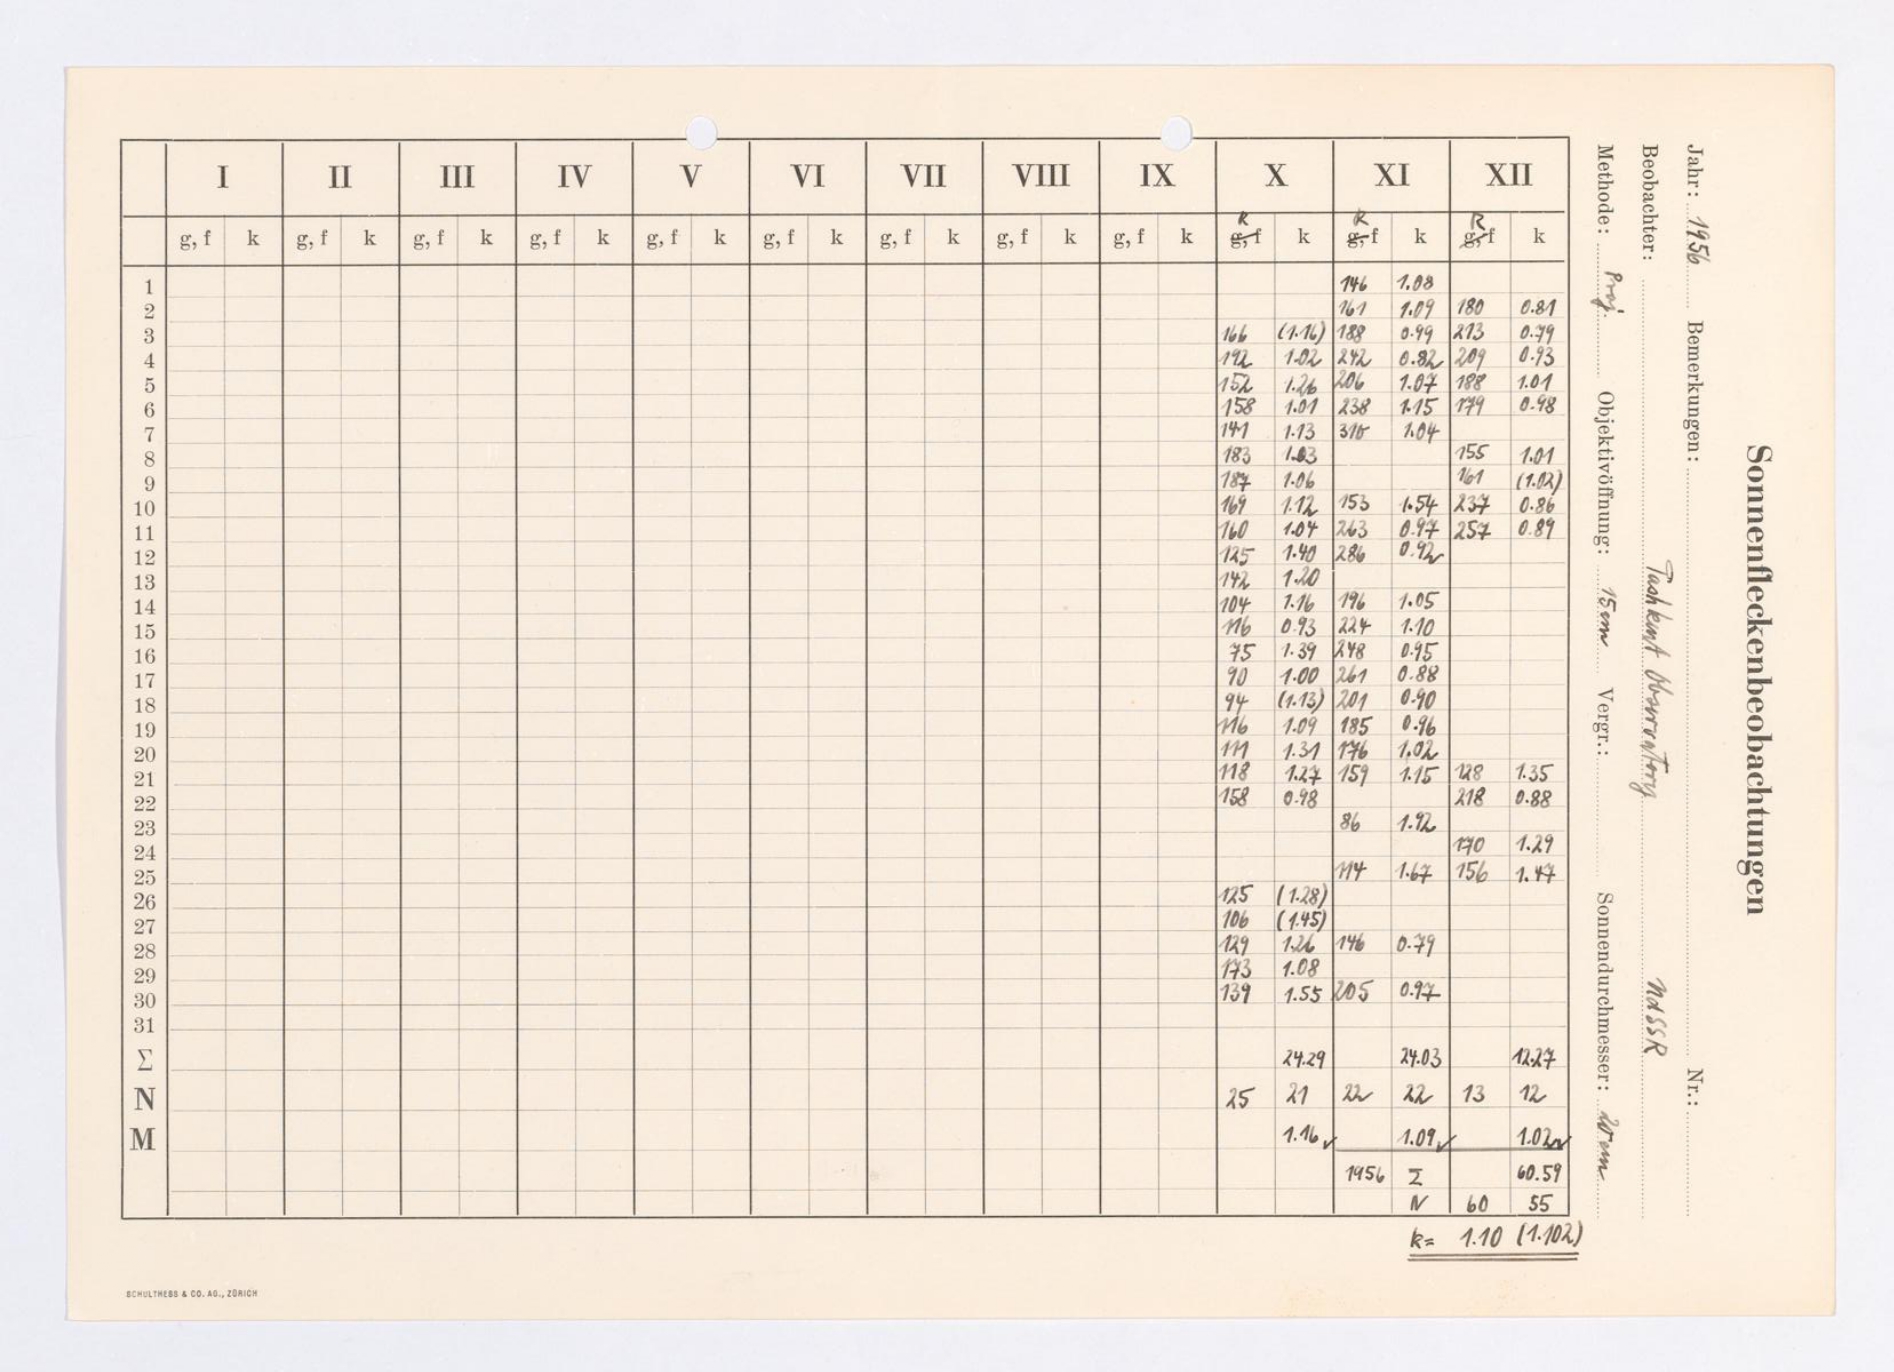 Sonnenfleckenbeobachtungen
Jahr: 1956 Bemerkungen: Nr.:
Beobachter: Tashkent Observatory UdSSR
Methode: Proj. Objektivöffnung: 15 cm Vergr.: Sonnendurchmesser: 20 cm
I II III IV V VI VII VIII IX X XI XII
R R R
g, f k g, f k g, f k g, f k g, f k g, f k g, f k g, f k g, f k g, f k g, f k g, f k
1 146 1.08
2 161 1.09 180 0.81
3 166 (1.16) 188 0.99 213 0.79
4 192 1.02 242 0.82 209 0.93
5 152 1.26 206 1.07 188 1.01
6 158 1.01 238 1.15 179 0.98
7 141 1.13 310 1.04
8 183 1.03 155 1.01
9 187 1.06 161 (1.02)
10 169 1.12 153 1.54 237 0.86
11 160 1.04 263 0.97 257 0.89
12 125 1.40 286 0.92
13 142 1.20
14 104 1.16 196 1.05
15 116 0.93 224 1.10
16 75 1.39 248 0.95
17 90 1.00 261 0.88
18 94 (1.13) 201 0.90
19 116 1.09 185 0.96
20 111 1.31 176 1.02
21 118 1.27 159 1.15 128 1.35
22 158 0.98 218 0.88
23 86 1.92
24 170 1.29
25 114 1.67 156 1.47
26 125 (1.28)
27 106 (1.45)
28 129 1.26 146 0.79
29 173 1.08
30 139 1.55 205 0.97
31
Σ 24.29 24.03 12.27
N 25 21 22 22 13 12
M 1.16 ✓ 1.09 ✓ 1.02 ✓
1956 Σ 60.59
N 60 55
k= 1.10 (1.102)
SCHULTHESS & CO. AG., ZÜRICH